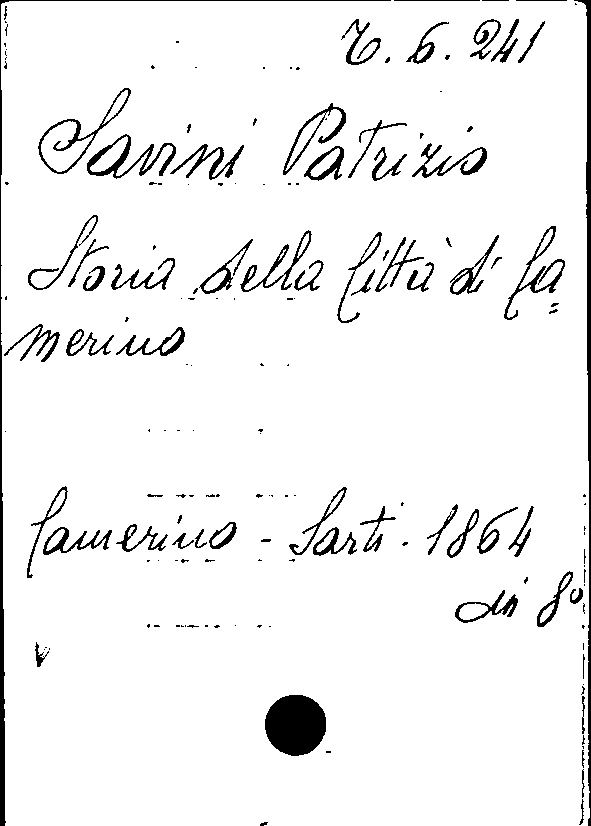 6. 241
Savini Patrizio
Storia della Città di Ca=
merino
Camerino - Sarti. 1864
in 8º
v